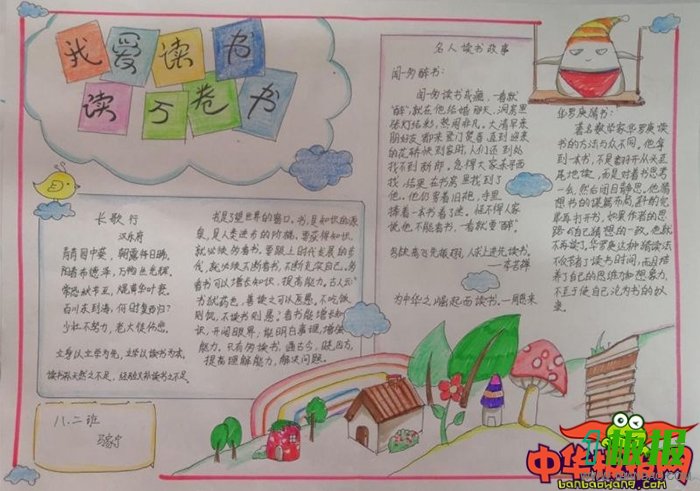 我爱读书
读万卷书
长歌行
汉乐府
青青园中葵，朝露待日晞。
阳春布德泽，万物生光辉。
常恐秋节至，焜黄华叶衰。
百川东到海，何时复西归？
少壮不努力，老大徒伤悲。
立身以立学为先，立学以读书为本。
八.二班
书是了望世界的窗口，书是知识的源
泉，是人类进书的阶梯，要获得知识，
就必须多看书。要跟上时代发展的步
伐，就必须不断看书，不断充实自己。多
看书可以增长知识，提高能力。古人云：
书犹药也，善读之可以医愚。不吃饭
则饥，不读书则愚！看书能增长知
识，开阔眼界，能明白事理，增强
能力。只有多读书，通古今，晓四方，
提高理解能力，解决问题。
名人读书故事
闻一多醉书：
闻一多读书成瘾，一看就
"醉"，就在他结婚那天，洞房里
张灯结彩，热闹非凡。大清早亲
朋好友都来登门贺喜，直到迎亲
的花轿快到家时，人们还到处
找不到新郎。急得大家东寻西
找，结果在书房里找到了
他。他仍穿着旧袍，手里
捧着一本书看了迷。怪不得人家
说他不能看书，一看就要"醉"。
为中华之崛起而读书。——周恩来
华罗庚猜书：
著名数学家华罗庚读
书的方法与众不同。他拿
到一本书，不是翻开从头至
尾地读，而是对着书思考
一会，然后闭目静思。他猜
想书的谋篇布局，
再打开书，如果作者的思
路与自己猜想的一致，他就
不再读了。华罗庚这种猜读法
不仅节省了读书时间，而且培
养了自己的思维力和想象力，
不至于使自己沦为书的奴
隶。
中华板报网
banbaowang.com